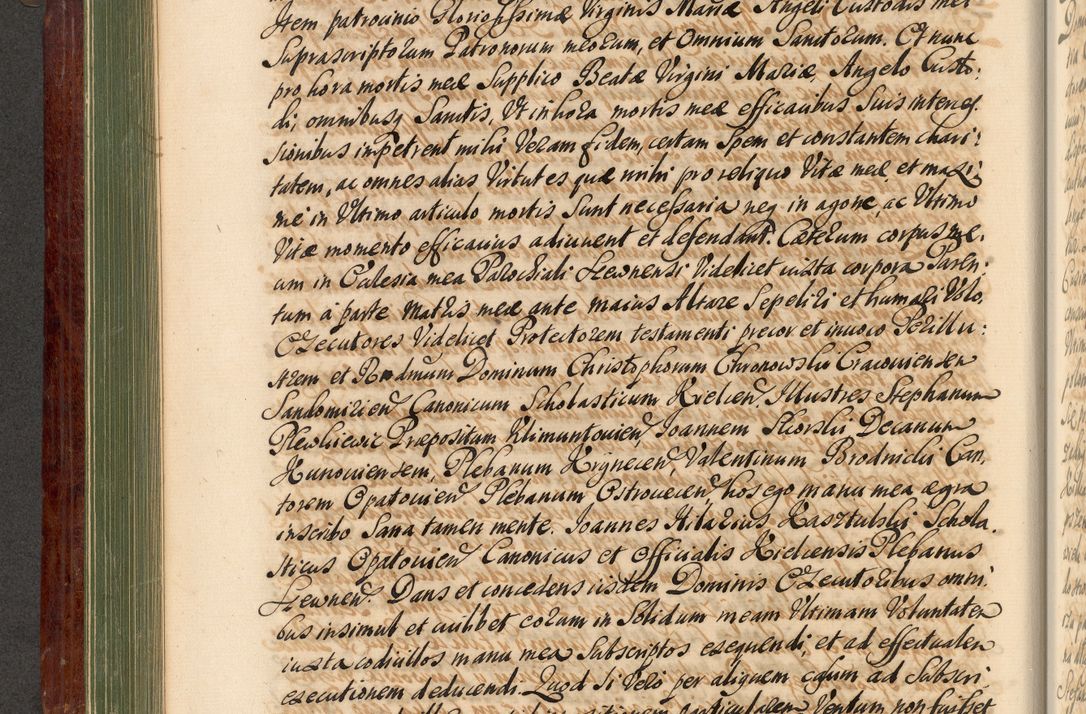 Item patrocinio Gloriosissimæ Virginis Mariæ Angeli Custodis mei
Suprascriptorum Patronorum meorum, et Omnium Sanctorum. Et nunc
pro hora mortis meæ Supplico Beatæ Virgini Mariæ, Angelo Custo,
di, omnibusq Sanctis, Ut in hora mortis meæ efficacibus Suis interces
sionibus impetrent mihi Veram fidem, certam Spem et constantem chari:
tatem, ac omnes alias Virtutes quæ mihi pro reliquo Vitæ meæ, et maxi,
me in Ultimo articulo mortis Sunt necessaria neq in agone, ac Ultimo
Vitæ momento efficacius adiuvent et defendant. Cæterum corpus me,
um in Eclesia mea Parochiali Szewnensi Videlicet iuxta corpora Paren,
tum á parte Matris meæ ante maius Altare Sepeliri et humari Volo.
Executores Videlicet Protectorem testamenti precor et invoco Perillu:
strem et Rndmum Dominum Christophorum Chronowski Cracoviensem
Sandomirien Canonicum Scholasticum Kielcen. Illustres Stephanum
Præpositum Klimuntovien Joannem Skorski Decanum
Kunoviensem, Plebanum Krynecen, Valentinum Brodnicki Can,
torem Opatovien Plebanum Ostrovecen hos ego manu mea ægra
inscribo Sana tamen mente. Joannes Hilarius Kasztulski Schola,
sticus Opatovien Canonicus et Officialis Kielcensis Plebanus
Szewnen. Dans et concedens iisdem Dominis Executoribus omni,
bus insimul et cuilibet eorum in Solidum meam Ultimam Voluntatem
iuxta codicillos manu mea Subscriptos exequendi, et ad effectualem
executionem deducendi. Quod Si Vero per aliquem eorum ad Subscri,
Ventum non fuisset